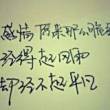 感情 原来那么脆
经得起风雨
却经不起平凡